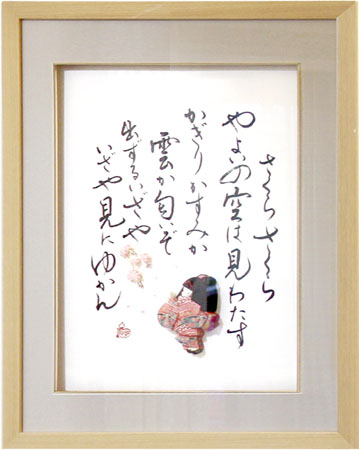 さくらさくら
やよいの空は見わたす
かぎりかすみか
雲か匂いぞ
出ずるいざや
いざや見にゆかん